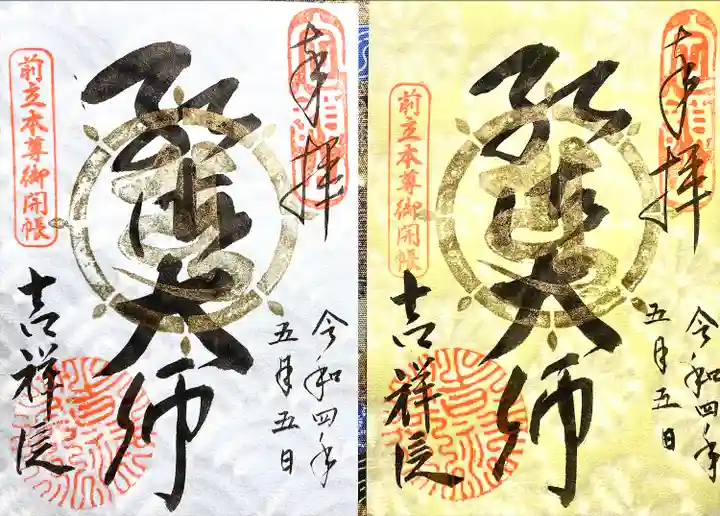 奉拝
令和四年
五月五日
弘法大師
前立本尊御開帳
吉祥院
奉拝
令和四年
五月五日
弘法大師
前立本尊御開帳
吉祥院